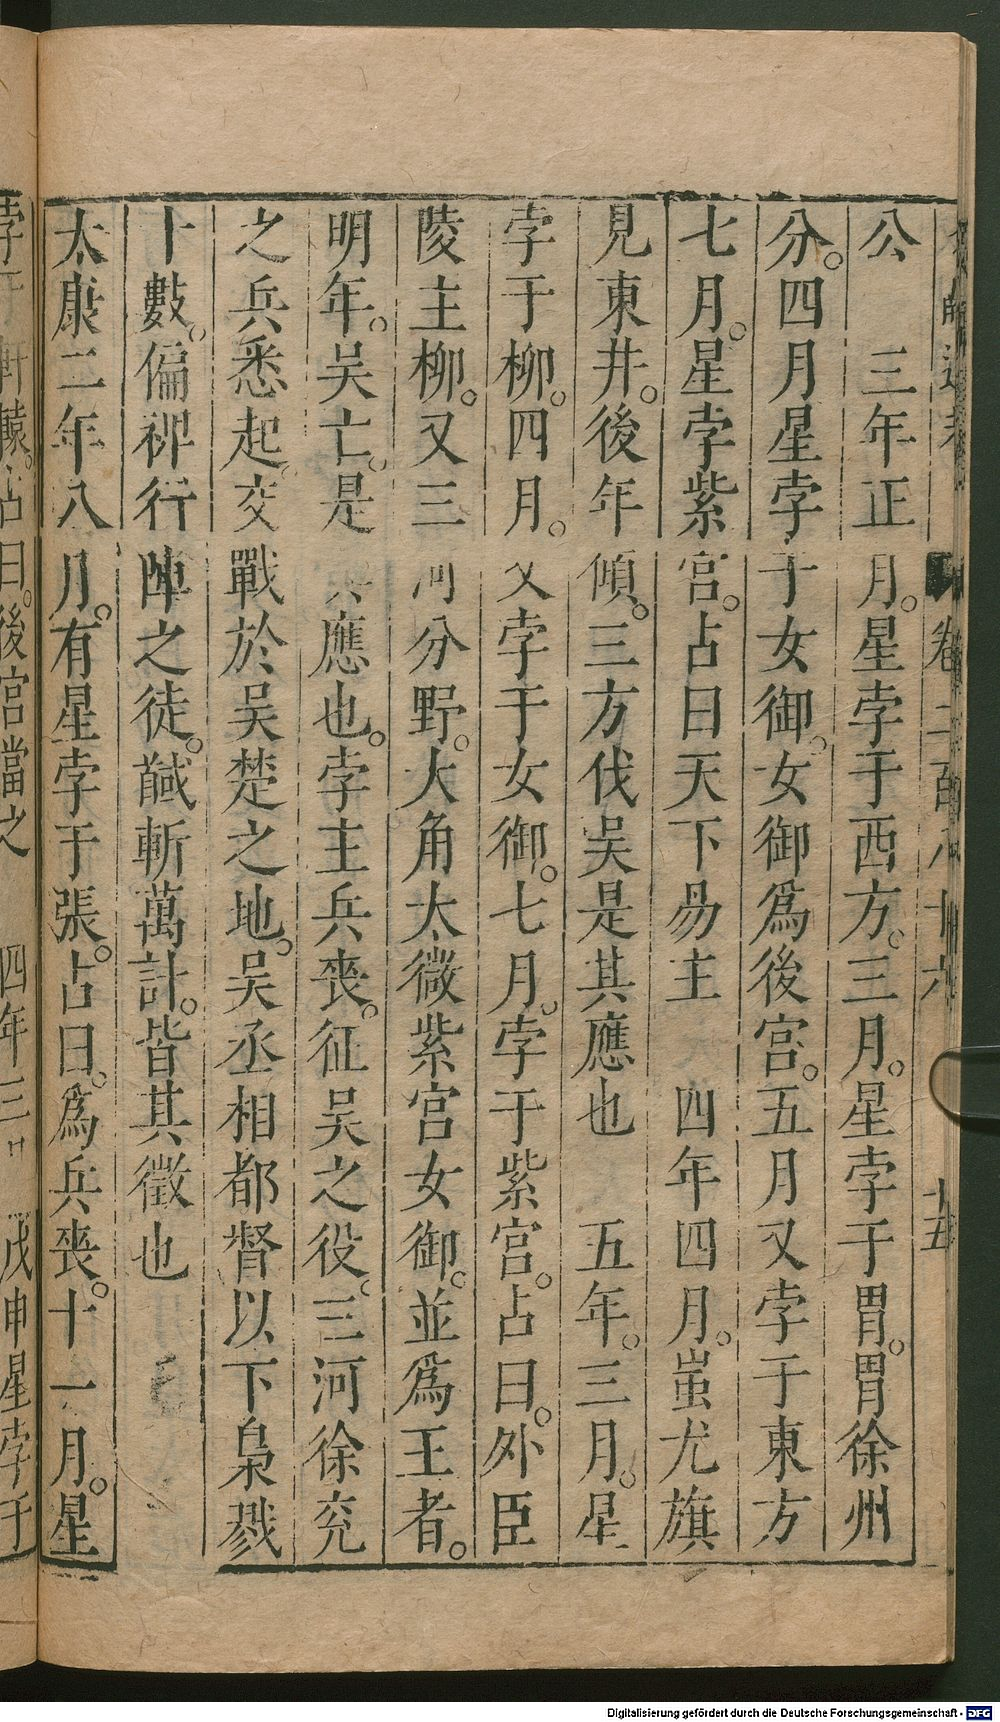 卷二百八十六
十五
公　三年正月。星孛于西方。三月。星孛于胃。胃徐州
分。四月星孛于女御。女御爲後宮。五月又孛于東方
七月。星孛紫宮。占曰天下易主　四年四月。蚩尤旗
見東井。後年傾。三方伐吳是其應也　五年。三月。星
孛于柳。四月。又孛于女御。七月。孛于紫宮。占曰。外臣
陵主柳。又三河分野。大角太微紫宮女御。並爲王者。
明年。吳亡。是其應也。孛主兵喪。征吳之役。三河徐兖
之兵悉起。交戰於吳楚之地。吳丞相都督以下梟戮
十數。偏裨行陣之徒。馘斬萬計。皆其徵也
太康二年八月。有星孛于張。占曰。爲兵喪。十一月。星
孛于軒轅。占曰。後宮當之　四年三　戊申星孛于
Digitalisierung gefördert durch die Deutsche Forschungsgemeinschaft - DFG